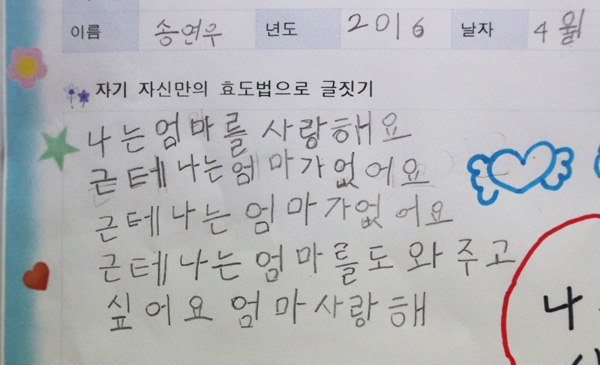 이름 송연우 년도 2016 날자 4월
자기 자신만의 효도법으로 글짓기
나는엄마를 사랑해요
근테나는엄마가없어요
근테나는 엄마가없어요
근테나는엄마를도와주고
싶어요 엄마사랑해
나